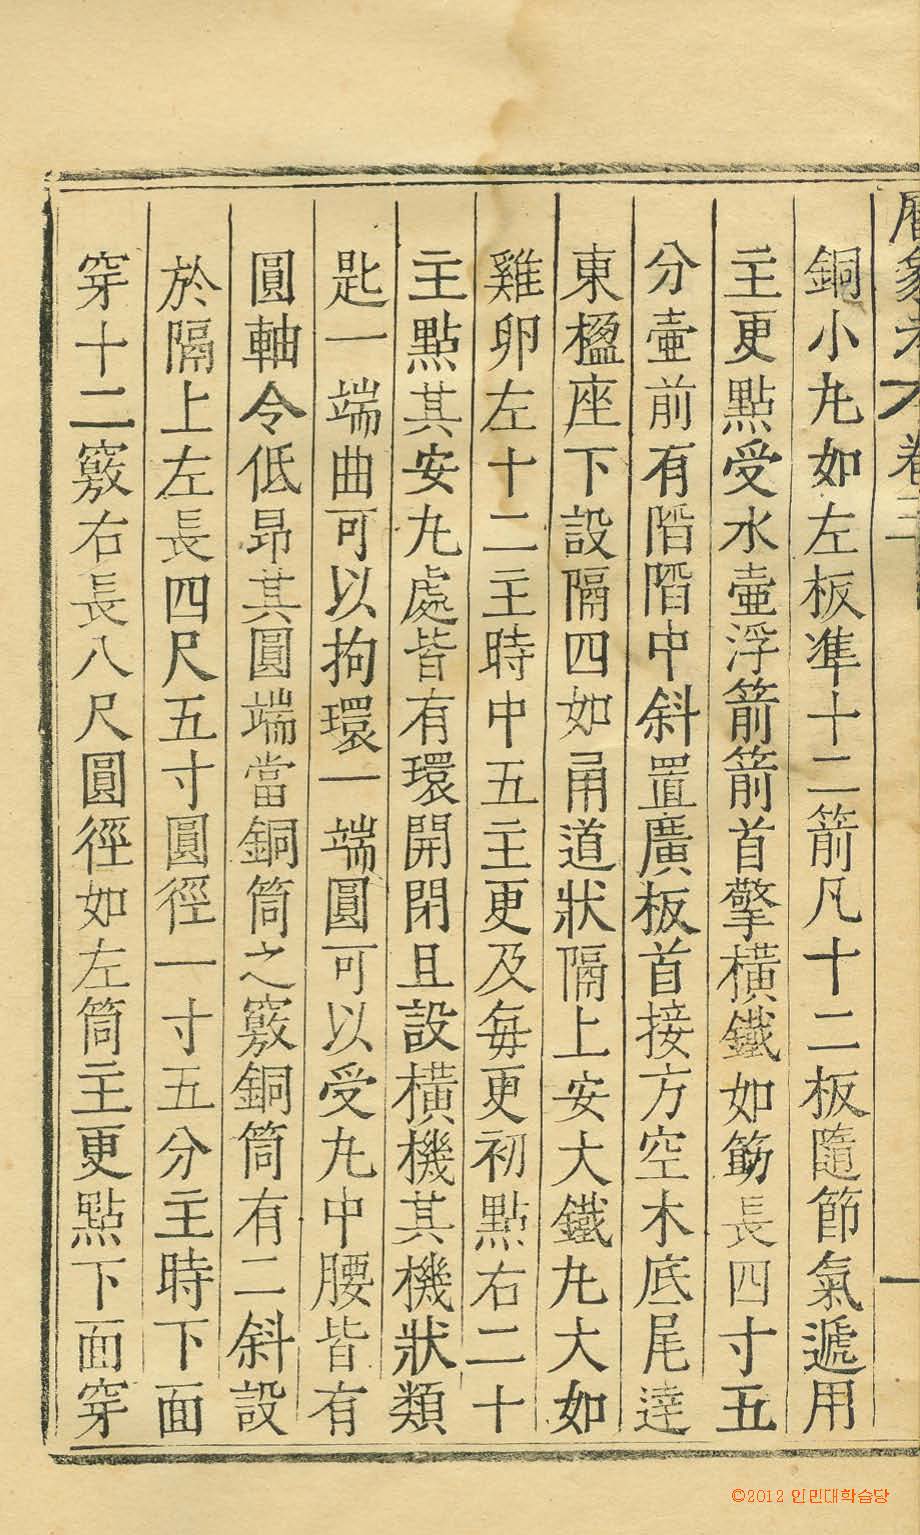 銅小丸如左板準十二箭凡十二板隨節氣遞用
主更點受水壷浮箭箭首擎橫鐵如筯長四寸五
分壷前有階階中斜置廣板首接方空木底尾達
東楹座下設隔四如甬道狀隔上安大鐵丸大如
雞卵左十二主時中五主更及每更初點右二十
主點其安丸處皆有環開閉且設橫機其機狀類
匙一端曲可以拘環一端圓可以受丸中腰皆有
圓軸令低昂其圓端當銅筒之竅銅筒有二斜設
於隔上左長四尺五寸圓徑一寸五分主時下面
穿十二竅右長八尺圓徑如左筒主更點下面穿
©2012 인민대학습당